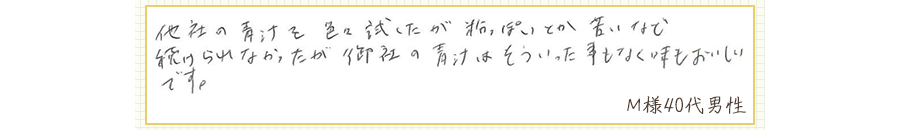 他社の青汁を色々試したが粉っぽいとか苦いなど
続けられなかったが御社の青汁はそういった事もなく味もおいしい
です。
M様40代男性